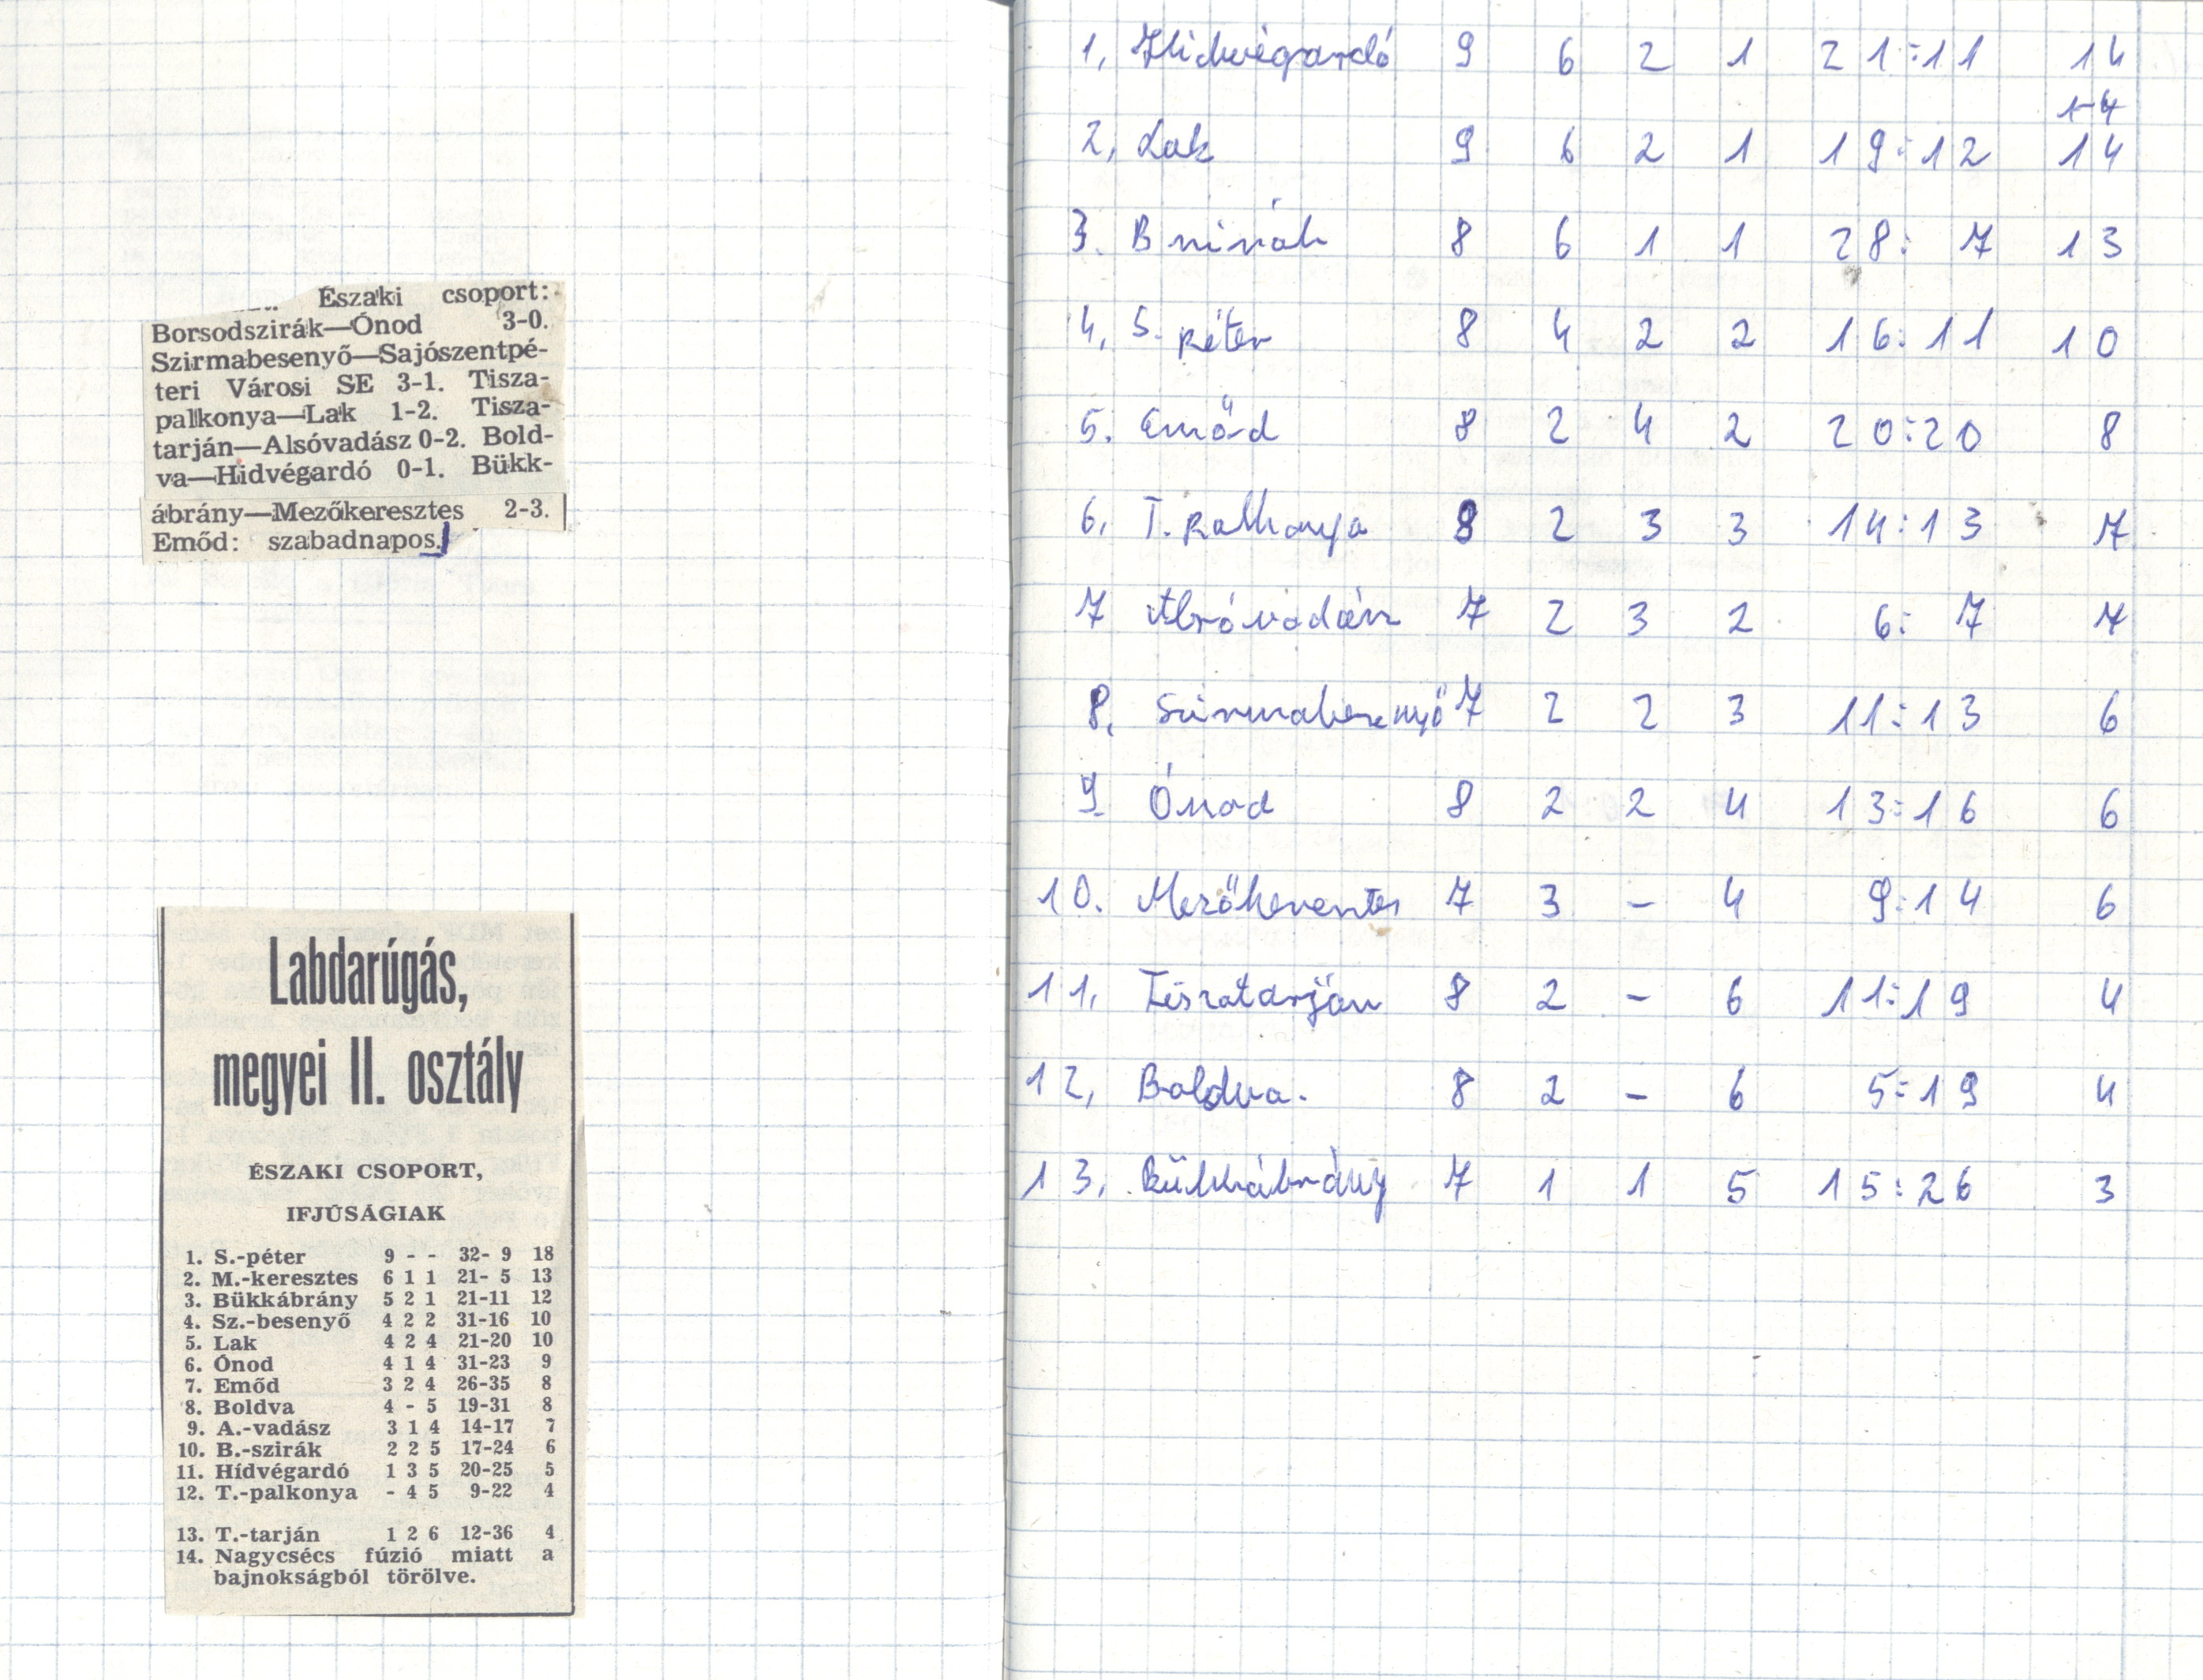 Északi csoport:
Borsodszirák—Ónod 3-0.
Szirmabesenyő—Sajószentpé-
teri Városi SE 3-1. Tisza-
palkonya—Lak 1-2. Tisza-
tarján—Alsóvadász 0-2. Bold-
va—Hidvégardó 0-1. Bükk-
ábrány—Mezőkeresztes 2-3.
Emőd: szabadnapos.
Labdarúgás,
megyei II. osztály
ÉSZAKI CSOPORT,
IFJÚSÁGIAK
1. S.-péter 9 - - 32- 9 18
2. M.-keresztes 6 1 1 21- 5 13
3. Bükkábrány 5 2 1 21-11 12
4. Sz.-besenyő 4 2 2 31-16 10
5. Lak 4 2 4 21-20 10
6. Ónod 4 1 4 31-23 9
7. Emőd 3 2 4 26-35 8
8. Boldva 4 - 5 19-31 8
9. A.-vadász 3 1 4 14-17 7
10. B.-szirák 2 2 5 17-24 6
11. Hídvégardó 1 3 5 20-25 5
12. T.-palkonya - 4 5 9-22 4
13. T.-tarján 1 2 6 12-36 4
14. Nagycsécs fúzió miatt a
bajnokságból törölve.
1, Hidvégardó 9 6 2 1 21:11 14
14
2, Lak 9 6 2 1 19:12 14
3. B szirák 8 6 1 1 28: 7 13
4, S. péter 8 4 2 2 16:11 10
5. Emőd 8 2 4 2 20:20 8
6, T. palkonya 8 2 3 3 14:13 7
7 Alsóvadász 7 2 3 2 6: 7 7
8, Szirmabesenyő 7 2 2 3 11:13 6
9. Ónod 8 2 2 4 13:16 6
10. Mezőkeresztes 7 3 - 4 9:14 6
11, Tiszatarján 8 2 - 6 11:19 4
12, Boldva. 8 2 - 6 5:19 4
13, Bükkábrány 7 1 1 5 15:26 3